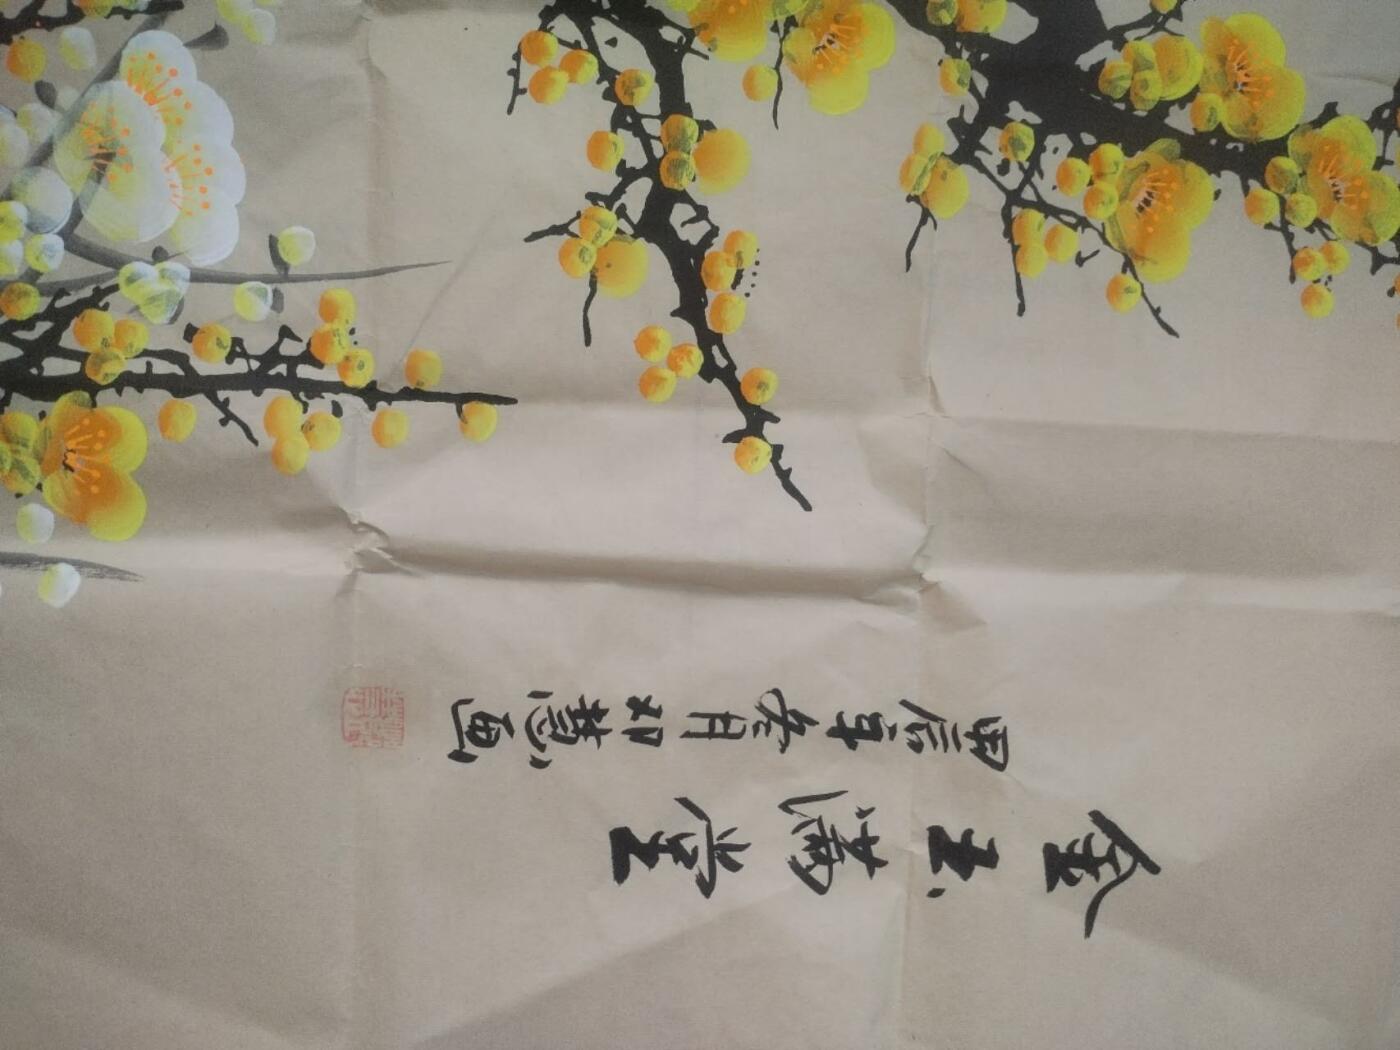 金玉满堂
甲辰年冬月邓慧画